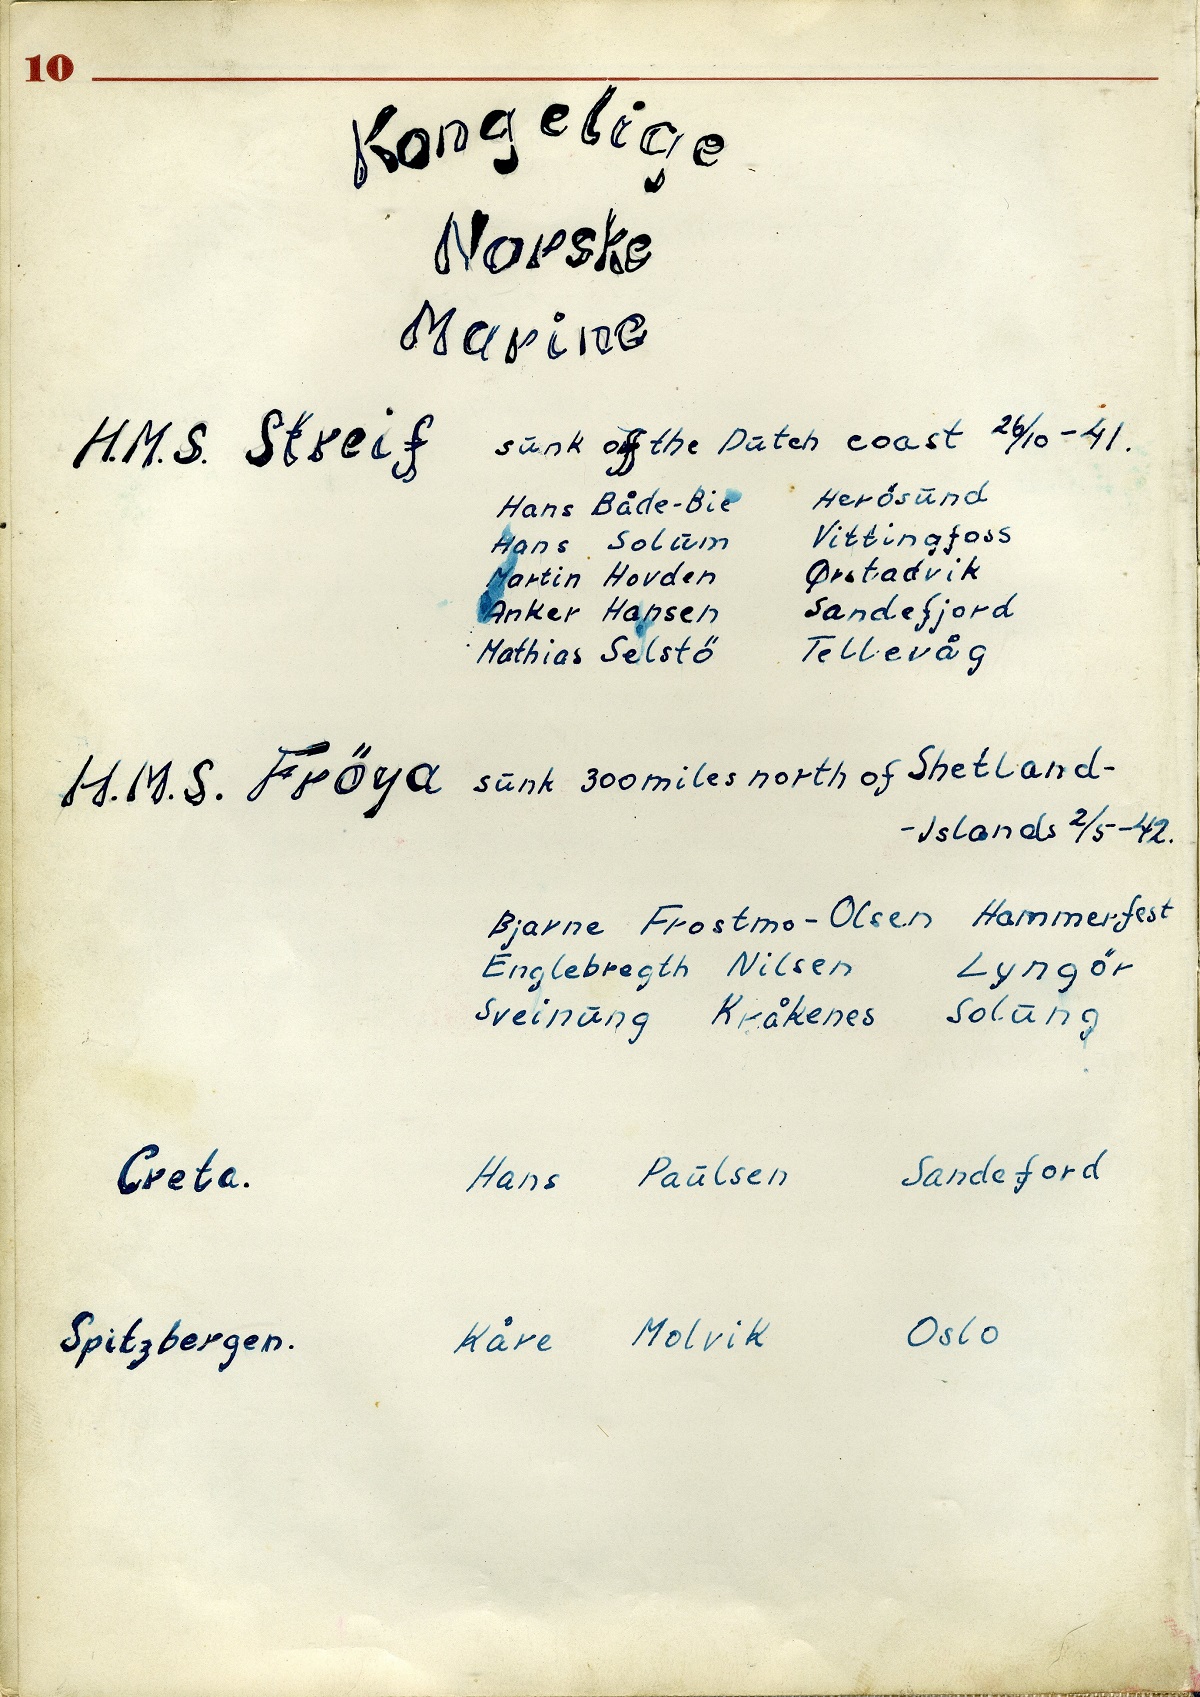 10
Kongelige
Norske
Marine
H.M.S. Streif sūnk off the Dūtch coast 26/10-41.
Hans Både-Bie Herösūnd
Hans Solūm Vittingfoss
Martin Hovden Ørstadvik
Anker Hansen Sandefjord
Mathias Selstö Tellevåg
H.M.S. Fröya sūnk 300 miles north of Shetland-
-Islands 2/5-42.
Bjarne Frostmo-Olsen Hammerfest
Englebregth Nilsen Lyngör
Sveinūng Kråkenes Solūng
Creta. Hans Paūlsen Sandeford
Spitzbergen. Kåre Molvik Oslo